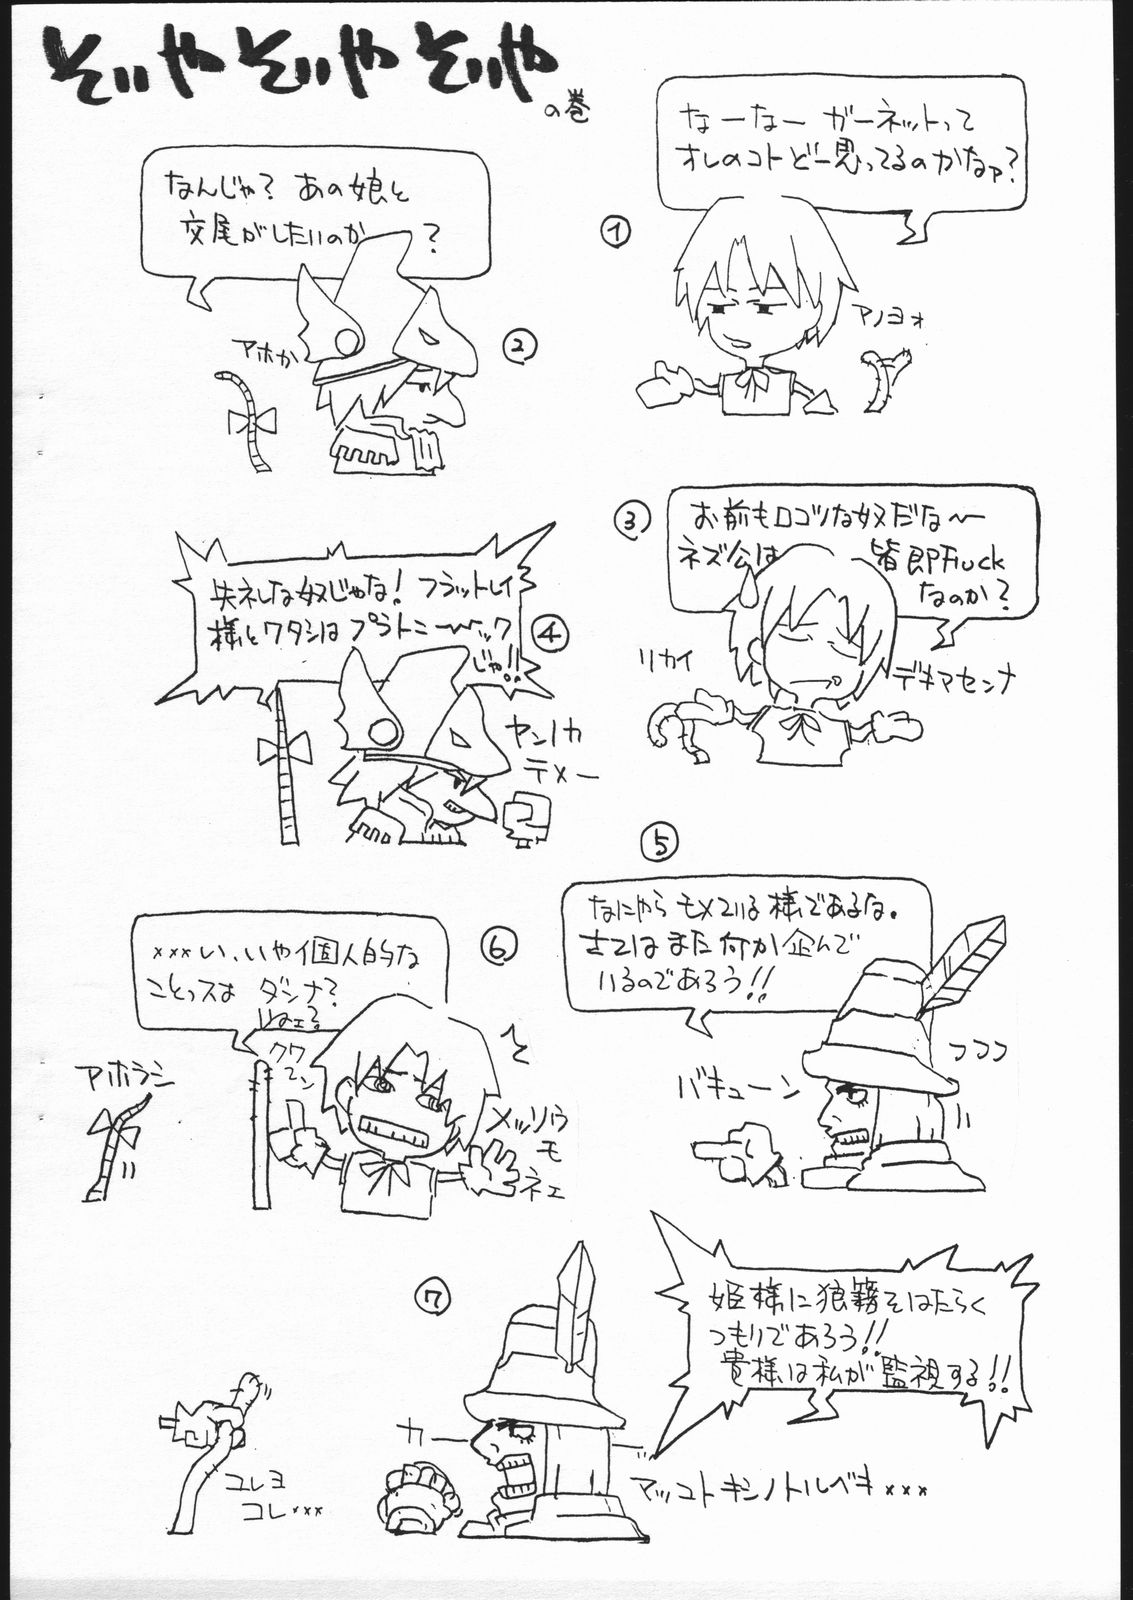 そいやそいやそいや
の巻
①
なーなー ガーネットって
オレのコトどー思ってるのかなァ?
アノヨォ
②
なんじゃ? あの娘と
交尾がしたいのか?
アホか
③
お前もロコツな奴だな〜
ネズ公は皆即Fuck
なのか?
リカイ
デキマセンナ
④
失ネしな奴じゃな! フラットレイ
様とワタシはプラトニ〜ック
じゃ!!
ヤンノカ
テメー
⑤
なにやらモメている様であるな。
さてはまた何か企んで
いるのであろう!!
フフフ
バキューン
⑥
×××い、いや個人的な
ことっスよ ダンナ?
いねェ?
アホラシ
メッソウ
モ
ネェ
⑦
姫様に狼籍をはたらく
つもりであろう!!
貴様は私が監視する!!
カー
マッコトキシノトルベキ×××
コレヨ
コレ×××